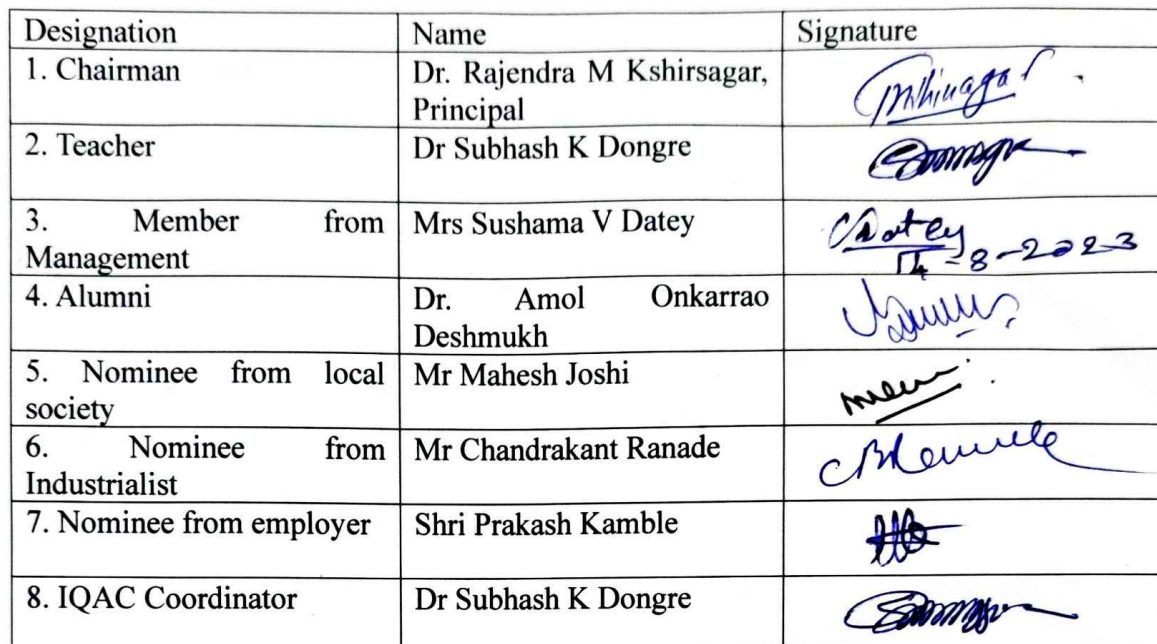 Designation Name Signature
1. Chairman Dr. Rajendra M Kshirsagar,
Principal
2. Teacher Dr Subhash K Dongre
3. Member from Mrs Sushama V Datey Datey
Management 14-8-2023
4. Alumni Dr. Amol Onkarrao
Deshmukh
5. Nominee from local Mr Mahesh Joshi
society
6. Nominee from Mr Chandrakant Ranade
Industrialist
7. Nominee from employer Shri Prakash Kamble
8. IQAC Coordinator Dr Subhash K Dongre